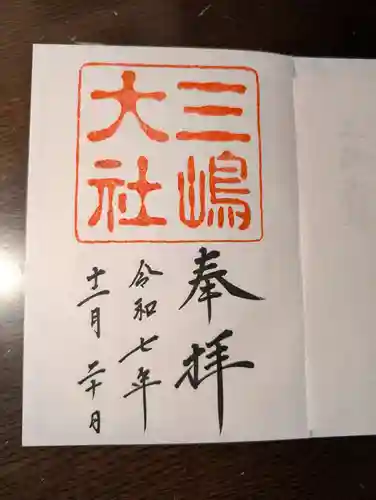 三嶋
大社
奉拝
令和七年
十一月二十日